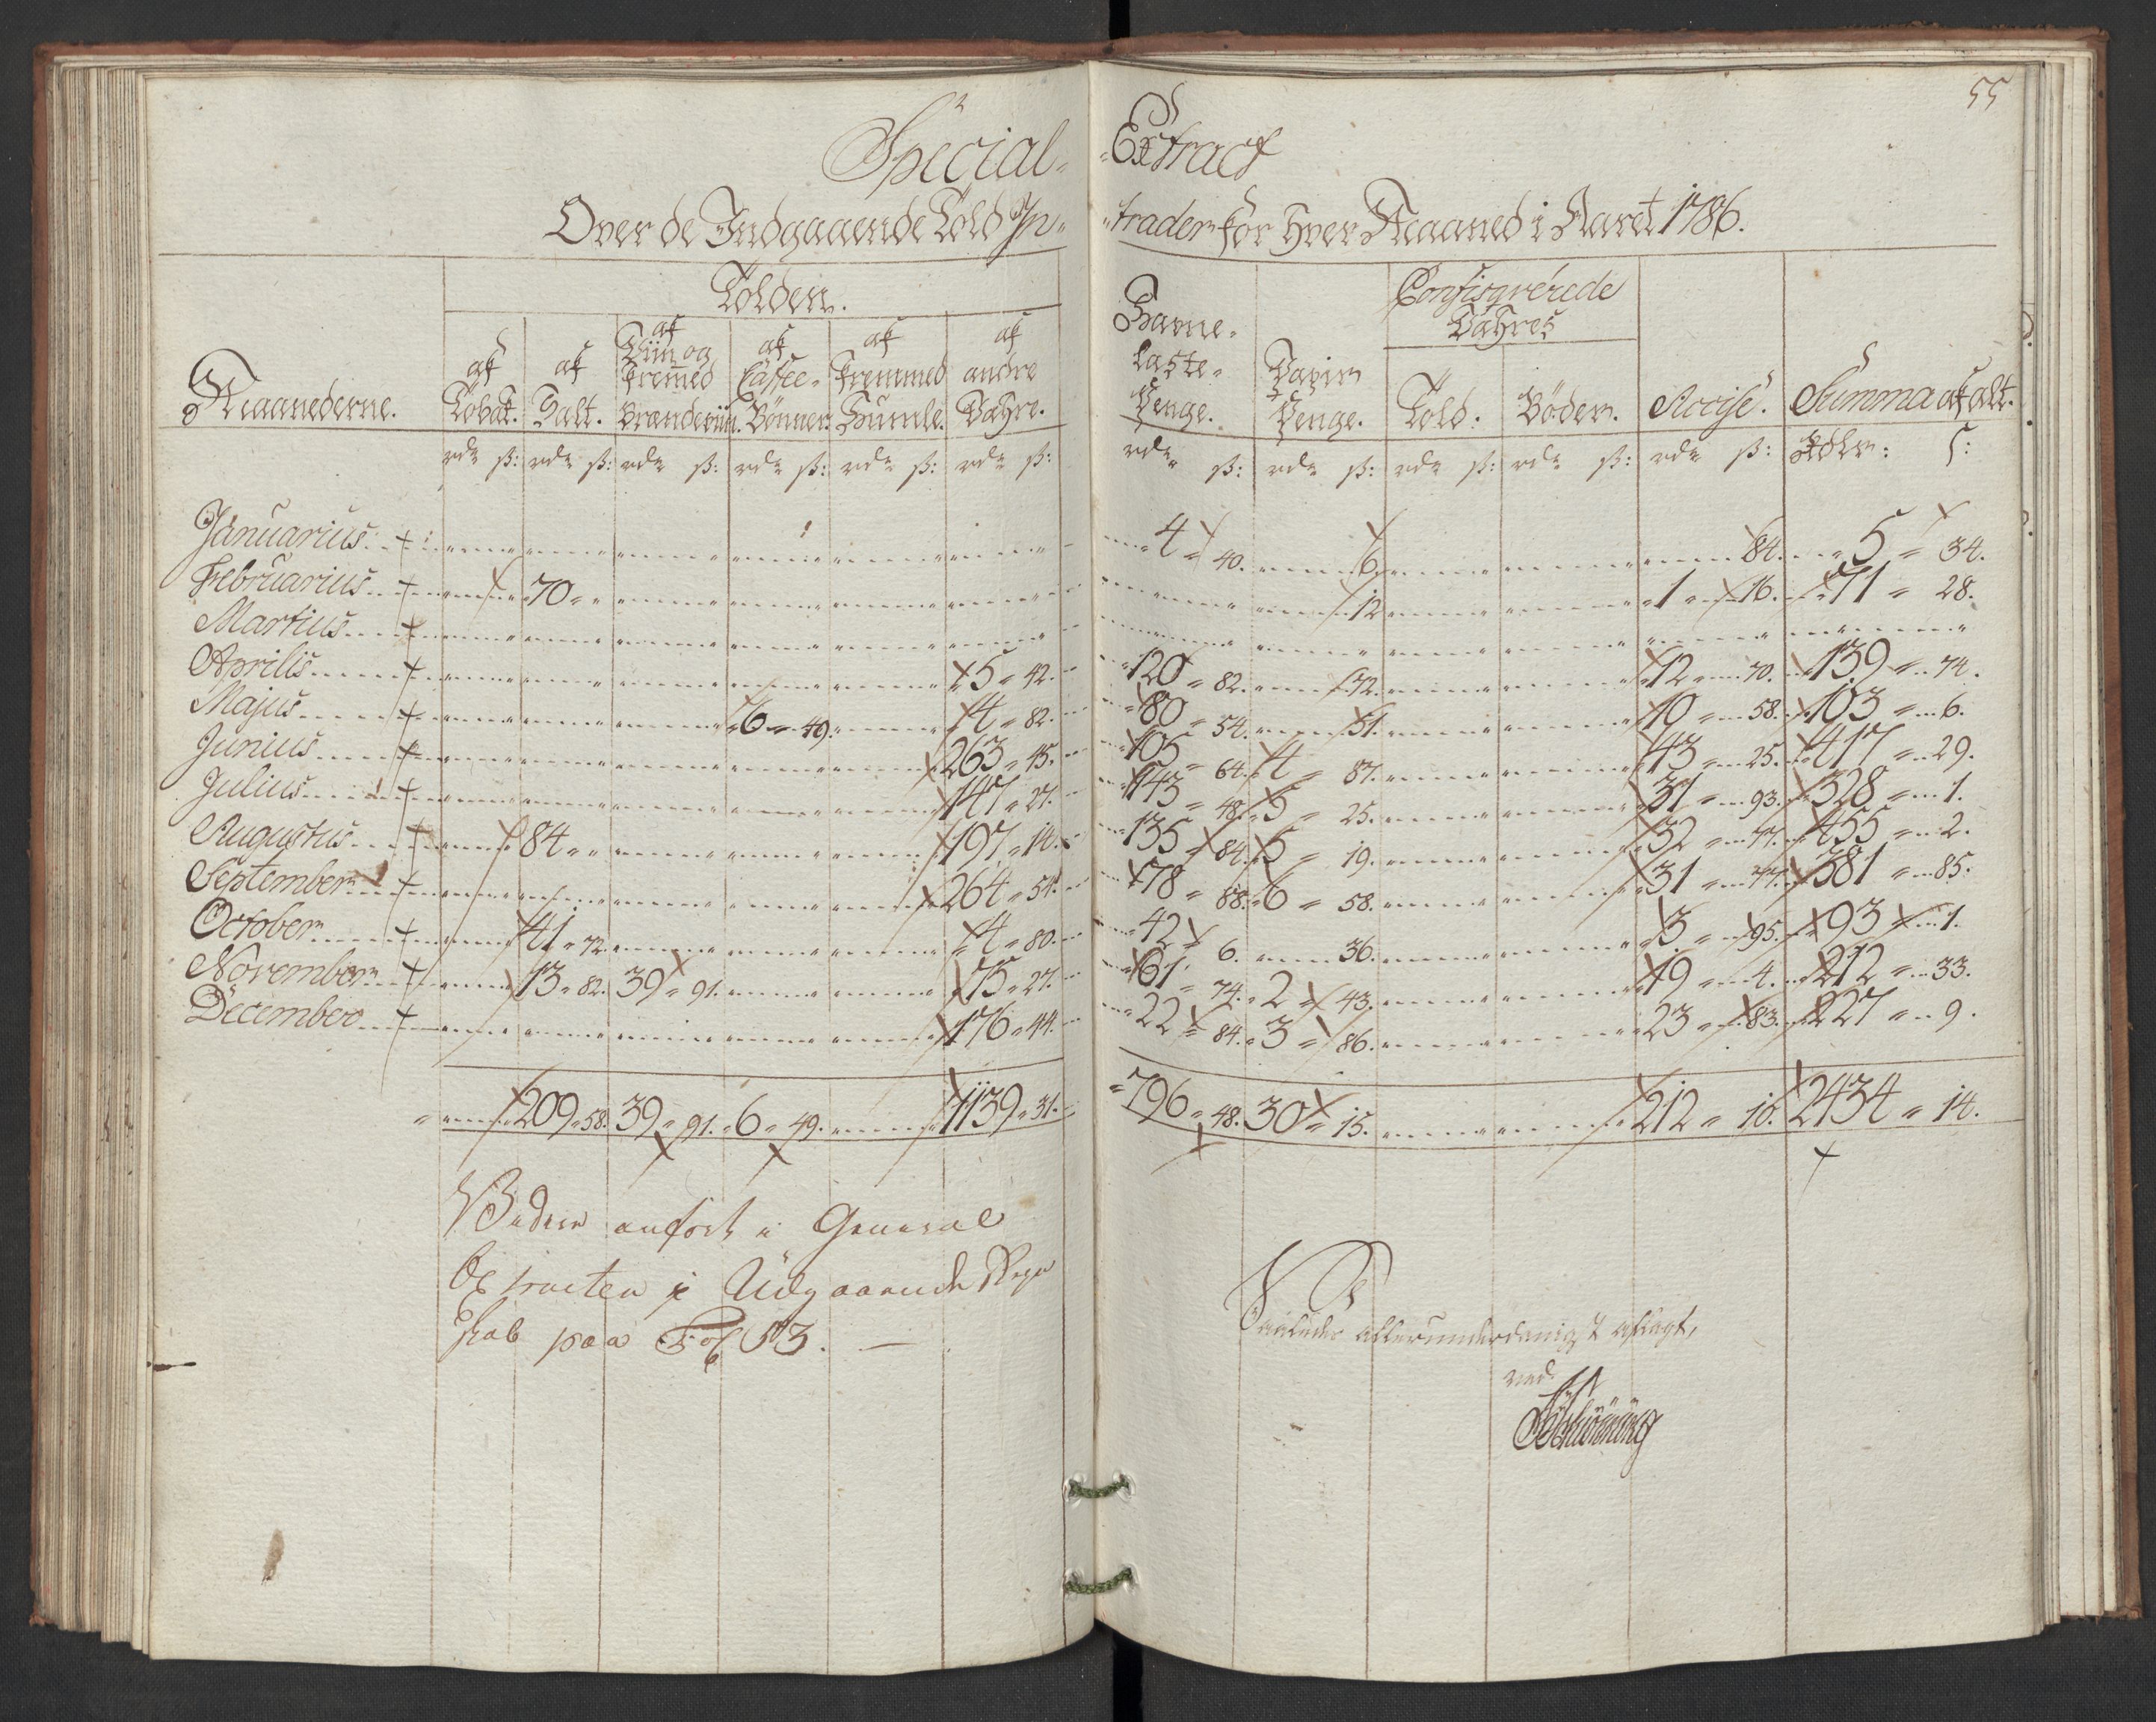 55
Special-Extract
Over de Indgaaende Told In-trader for hver Maaned i Aaret 1786.
Tolden.
Confisqverede Vahres
Maanederne. af Tobak. af Salt. af Viin og fremmed Brændeviin. af Caffee-Bønner. af fremmed Humle. af andre Vahre. Havne-Laste-Penge. Papir Penge. Told: Bøder. Accise. Summa af alt.
rdr ß: rdr ß: rdr ß: rdr ß: rdr ß: rdr ß: rdr ß: rdr ß: rdr ß: rdr ß: rdr ß: Rdlr: ß:
Januarius 4 = 40. 6. 84. 5 = 34.
Februarius 70 = 12 1 = 16. 71 = 28.
Martius
Aprilis 5 = 42. 120 = 82. 72. 12 = 70. 139 = 74.
Majus 6 = 49. 4 = 82. 80 = 54. 51. 10 = 58. 103 = 6.
Junius 263 = 45. 105 = 64. 4 = 87. 43 = 25. 417 = 29.
Julius 147 = 27. 143 = 48. 5 = 25. 31 = 93. 328 = 1.
Augustus 84 = 197 = 14. 135 = 84. 5 = 19. 32 = 77. 455 = 2.
September 264 = 54. 78 = 88. 6 = 58. 31 = 77. 381 = 85.
October 41 = 72. 4 = 80. 42 = 6. 36. 3 = 95. 93 = 1.
November 13 = 82. 39 = 91. 75 = 27. 61 = 74. 2 = 43. 19 = 4. 212 = 33.
December 176 = 44. 22 = 84. 3 = 86. 23 = 83. 227 = 9.
209 = 58. 39 = 91. 6 = 49. 1139 = 31. 796 = 48. 30 = 15. 212 = 10. 2434 = 14.
Videre anført i General
Extracten i Udgaaende Regn
skab paa Fol 53.
Saaledes allerunderdanigst aflagt,
ved